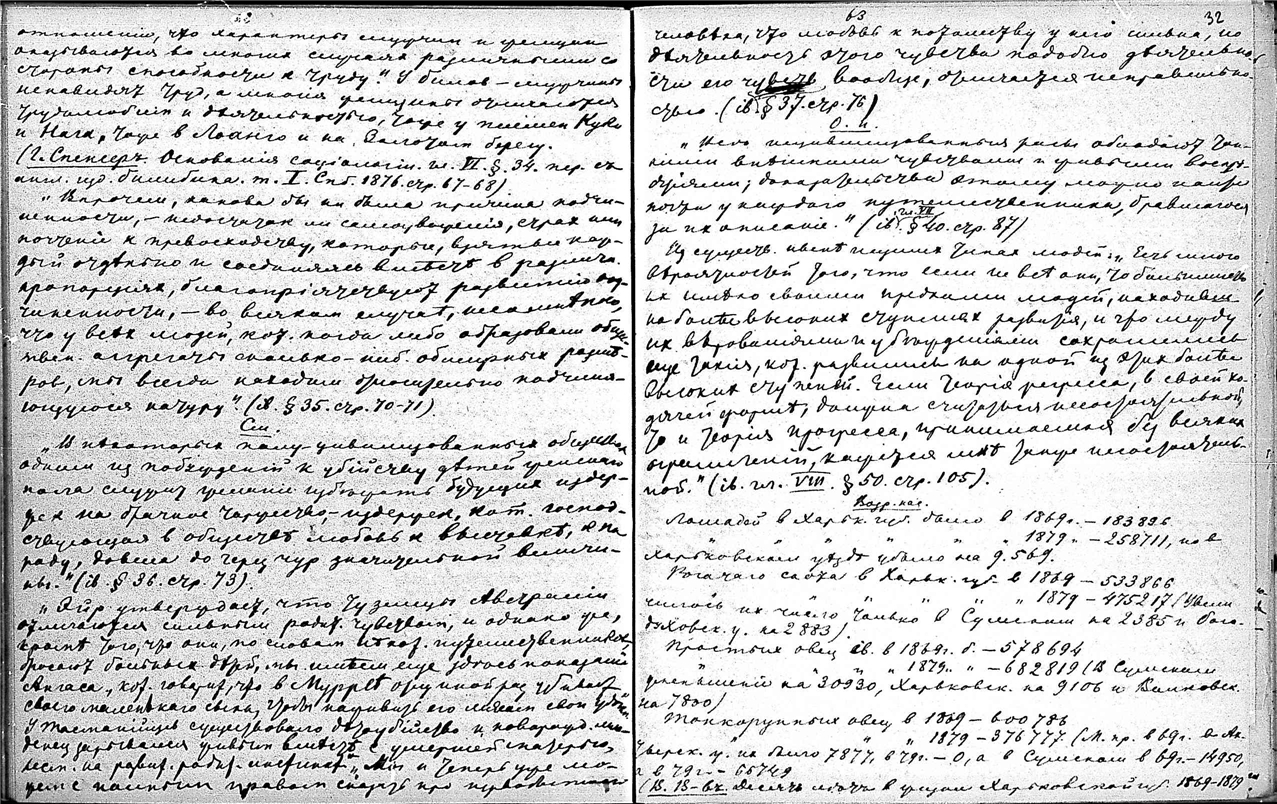 отношеніи, что характеры мущин и женщин
оказываются во многих случаях различными со
стороны способности к труду." У билов – мущины
ненавидят труд, а многія женщины отличаются
трудолюбіем и дѣятельностью, тоже у племен Куки
и Нага, тоже в Лоанго и на Золотом берегу.
(Г. Спенсеръ. Основанія соціологіи. гл. VI. § 34. пер. съ
англ. изд. Билибина. т. I. Спб. 1876. стр. 67-68)
„Впрочем, какова бы ни была причина подчи-
ненности, – недостаток ли самоуваженія, страх или
почтеніе к превосходству, которые, взятые каж-
дый отдѣльно и соединяясь вмѣстѣ в различн.
пропорціях, благопріятствуют развитію под-
чиненности, – во всяком случаѣ, несомнѣнно,
что у всѣх людей, кот. когда либо образовали общест-
венн. аггрегаты сколько-ниб. обширных размѣ-
ров, мы всегда находим относительно подчиня-
ющуюся натуру." (ib. § 35. стр. 70-71).
Сем.
„В нѣкоторых полу-цивилизованных обществах
одним из побужденій к убійству дѣтей женскаго
пола служит желаніе избѣжать будущих издер-
жек на брачное торжество, – издержек, кот. господ-
ствующая в обществѣ любовь к выставкѣ, к па-
раду, довела до чересчур значительной величи-
ны." (ib. § 36. стр. 73).
„Эйр утверждает, что туземцы Австраліи
отличаются сильным родит. чувством, и однако же,
кромѣ того, что они, по словам нѣкот. путешественников,
бросают больных дѣтей, мы имѣем еще здѣсь показаніе
Ангаса, кот. говорит, что в Муррѣ один
своего маленькаго сына, чтобы наживить его мясом свои
У тасманійцев существовало дѣтоубійство и новорожд. мла-
денец зарывался живым вмѣстѣ с умершей матерью,
63
32
человѣка, что любовь к потомству у него сильна, но
дѣятельность этого чувства подобно дѣятельно-
сти его чувств вообще, отличается неправильно-
стью. (ib. § 37. стр. 76)
О. и.
„Всѣ нецивилизованныя расы обладают тон-
кими внѣшними чувствами и живыми воспрі-
ятіями; доказательства этому можно найти
почти у каждаго путешественника, бравшагося
за их описаніе." (ib. гл. VII. § 40. стр. 87)
Из существ. нынѣ низших типах людей: „Есть много
вѣроятностей того, что если не всѣ они, то большинство
их имѣло своими предками людей, находивш.
на болѣе высоких ступенях развитія, и что между
их вѣрованіями и убѣжденіями сохранились
еще такія, кот. развились на одной из этих болѣе
высоких ступеней. Если теорія регресса, в своей хо-
дячей формѣ, должна считаться несостоятельной,
то и теорія прогресса, принимаемая без всяких
ограниченій, кажется мнѣ также несостоятель-
ной." (ib. гл. VIII. § 50. стр. 105).
Лошадей в Харьк. губ. было в 1869 г. – 183896
" " " " 1879 " – 258711, но в
Харьковском уѣздѣ убыло на 9.569.
Рогатаго скота в Харьк. губ. в 1869 – 533866
" " " " 1879 – 475217 (Увели
чилось их число только в Сумском на 2385 и Бого-
духовск. у. на 2883)
Простых овец ib. в 1869 г. б. – 578694
" " " 1879 " – 682819 (В Сумском
уменьшеніе на 30930, Харьковск. на 9106 и Валковск.
на 7800)
Тонкорунных овец в 1869 – 600786
" " " 1879 – 376777. (М. пр. в 69 г. в Ах-
тырск. у. их было 7877, в 79 г. – 0, а в Сумском в 69 г. – 14950,
а в 79 г. – 65749
Десять лѣт в жизни Харьковской губ. 1869-1879